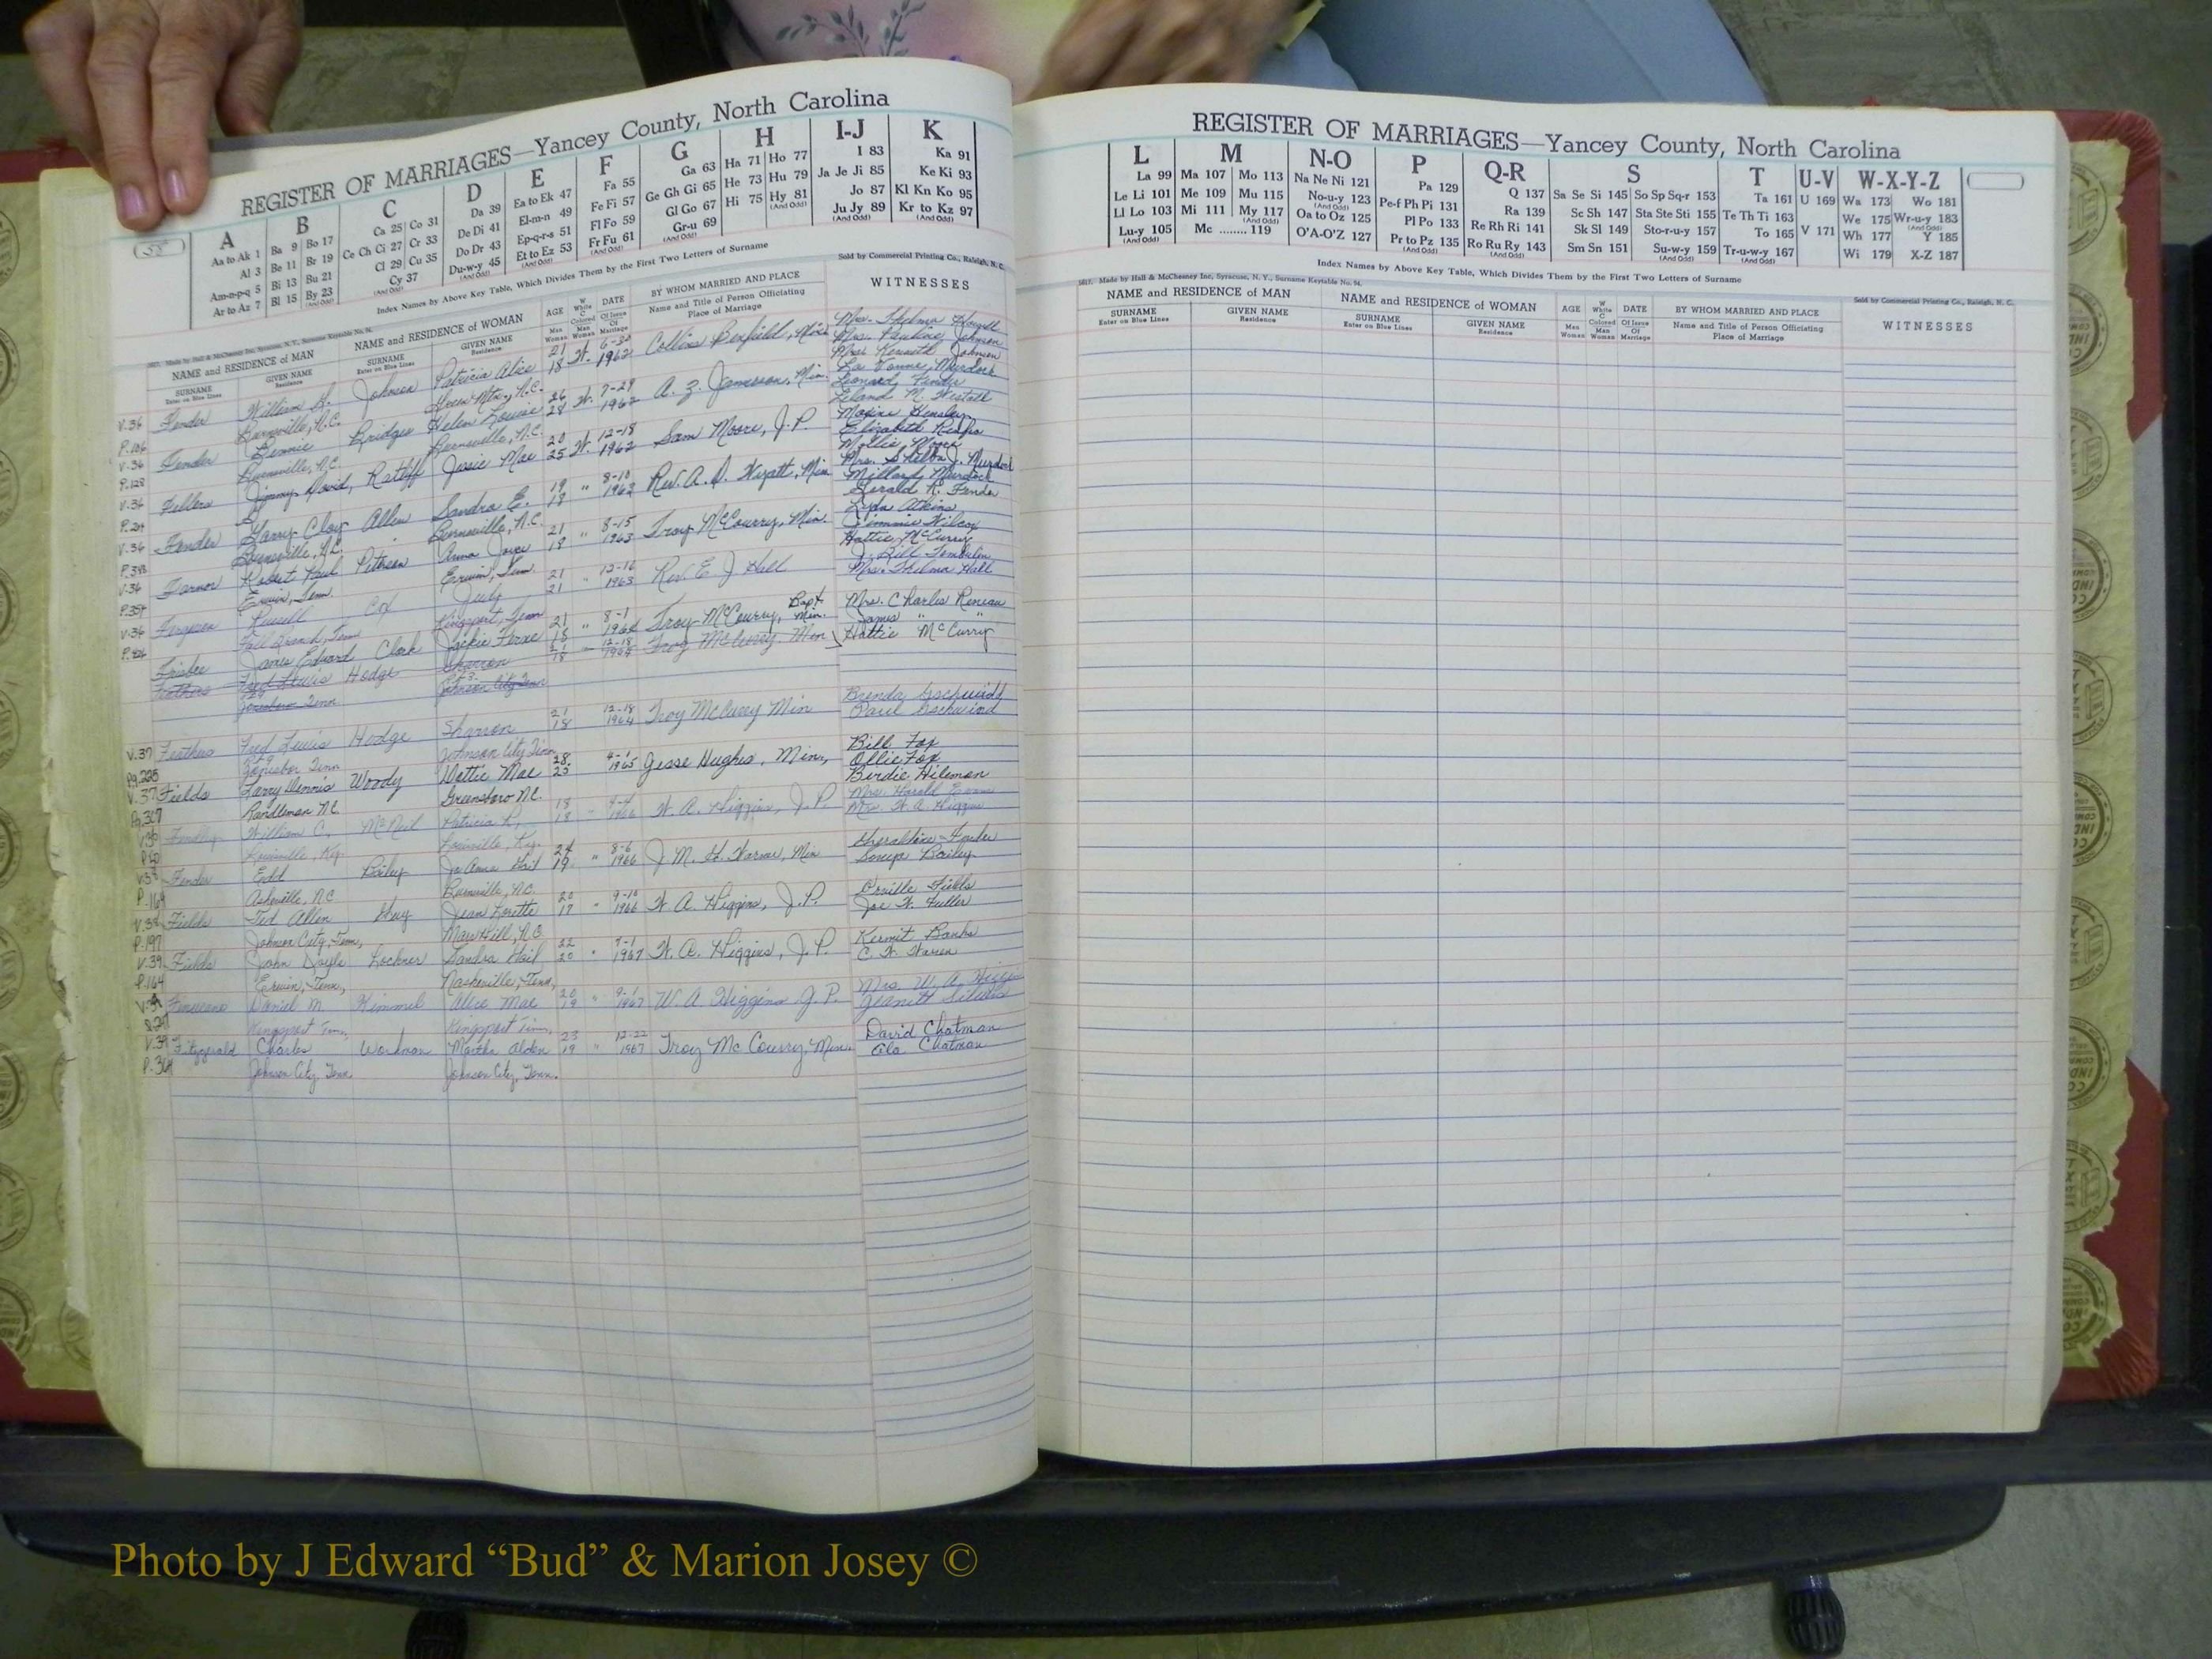 REGISTER OF MARRIAGES—Yancey County, North Carolina
58
A
Aa to Ak 1
Al 3
Am-n-p-q 5
Ar to Az 7
B
Ba 9 Bo 17
Be 11 Br 19
Bi 13 Bu 21
Bl 15 By 23
(And Odd)
C
Ca 25 Co 31
Ce Ch Ci 27 Cr 33
Cl 29 Cu 35
(And Odd) Cy 37
D
Da 39
De Di 41
Do Dr 43
Du-w-y 45
(And Odd)
E
Ea to Ek 47
El-m-n 49
Ep-q-r-s 51
Et to Ez 53
(And Odd)
F
Fa 55
Fe Fi 57
Fl Fo 59
Fr Fu 61
(And Odd)
G
Ga 63
Ge Gh Gi 65
Gl Go 67
Gr-u 69
(And Odd)
H
Ha 71 Ho 77
He 73 Hu 79
Hi 75 Hy 81
(And Odd)
I-J
I 83
Ja Je Ji 85
Jo 87
Ju Jy 89
(And Odd)
K
Ka 91
Ke Ki 93
Kl Kn Ko 95
Kr to Kz 97
(And Odd)
Index Names by Above Key Table, Which Divides Them by the First Two Letters of Surname
Sold by Commercial Printing Co., Raleigh, N. C.
NAME and RESIDENCE of MAN
SURNAME
Enter on Blue Lines
GIVEN NAME
Residence
NAME and RESIDENCE of WOMAN
SURNAME
Enter on Blue Lines
GIVEN NAME
Residence
AGE
Man
Woman
W
White
C
Colored
Man
Woman
DATE
Of Issue
Of
Marriage
BY WHOM MARRIED AND PLACE
Name and Title of Person Officiating
Place of Marriage
WITNESSES
V.36 Fender William H. Johnson Patricia Alice 21 W. 6-30 Collins Benfield, Mrs. Thelma
P.106 Burnsville, N.C. Green Mtn., N.C. 18 1962 Mrs. Pauline Johnson
Mrs. Kenneth Johnson
V.36 Fender Bennie Bridges Helen Louise 26 W. 7-29 A. Z. Jamerson, Min. La Vonne Murdock
P.128 Burnsville, N.C. Burnsville, N.C. 28 1962 Leonard Fender
Leland M. Westall
V.36 Fellers Jimmy David, Ratliff Jessie Mae 20 W. 12-18 Sam Moore, J.P. Maxine Hensley
P.24 25 1962 Elizabeth
Mollie Moore
V.36 Fender Garry Clay Allen Sandra E. 19 " 8-10 Rev. A. D. Wyatt, Min Mrs. Shelba J. Murdock
P.343 Burnsville, N.C. Burnsville, N.C. 18 1963 Millard Murdock
Gerald R. Fender
V.36 Farnor Robert Paul Peterson Anna Joyce 21 " 8-15 Troy McCourry, Min. Lyda Atkins
P.354 Erwin, Tenn. Erwin, Tenn 18 1963 Jimmie Wilcox
Hattie McCurry
V.36 Ferguson Russell Cox Judy 21 " 12-16 Rev. E J Hall J. Bill
P.426 Fall Branch, Tenn Kingsport, Tenn 21 1963 Mrs. Thelma Hall
Frisbee James Edward Clark Jackie Ferne 21 " 8-1 Troy McCourry, Bapt. Min. Mrs. Charles Reneau
18 1964 James "
Feathers Fred Lewis Hodge Sharron 21 12-18 Troy McCourry, Min Hattie McCurry
Rt 9 Rt 3 18 1964
Jonesboro Tenn Johnson City Tenn
V.37 Feathers Fred Lewis Hodge Sharron 21 12-18 Troy McCurry Min Brenda Gschwind
Pg.225 Rt 9 Johnson City Tenn 18 1964 Paul Gschwind
Jonesbor Tenn
V.37 Fields Larry Dennis Woody Dottie Mae 28 1965 Jesse Hughes, Min, Bill Fox
Pg.307 Randleman NC Greensboro NC 25 Ollie Fox
Birdie Hileman
William C. McNeil Patricia L. 18 1966 W. A. Higgins, J.P. Mrs. Harold
Louisville, Ky. Louisville, Ky. 18 Mrs. W. A. Higgins
V.38 Fender Edd Bailey Jo Anna Gail 24 " 8-6 J. M. H. Warner, Min Geraldine Fender
P.164 Asheville, N.C. Burnsville, N.C. 19 1966 Bailey
V.38 Fields Ted Allen Guy Jean Lorette 20 " 9-10 W. A. Higgins, J.P. Orville Fields
P.197 Johnson City, Tenn, Mars Hill, N.C. 17 1966 Joe W. Fuller
V.39 Fields John Doyle Lockner Sandra Gail 22 " 7-1 W. A. Higgins, J.P. Kermit Banks
P.164 Erwin, Tenn, Nasheville, Tenn, 20 1967 C. W. Warren
V.39 Daniel M. Kimmel Alice Mae 20 " 9-1 W. A Higgins J.P. Mrs. W. A.
Kingsport Tenn, Kingsport Tenn, 19 1967
V.39 Fitzgerald Charles Workman Martha Alden 23 " 12-22 Troy McCourry, Min. David Chatman
P.304 Johnson City Tenn Johnson City, Tenn. 19 1967 Ala Chatman
REGISTER OF MARRIAGES—Yancey County, North Carolina
L
La 99
Le Li 101
Ll Lo 103
Lu-y 105
(And Odd)
M
Ma 107 Mo 113
Me 109 Mu 115
Mi 111 My 117
(And Odd)
Mc ........ 119
N-O
Na Ne Ni 121
No-u-y 123
(And Odd)
Oa to Oz 125
O'A-O'Z 127
P
Pa 129
Pe-f Ph Pi 131
Pl Po 133
Pr to Pz 135
(And Odd)
Q-R
Q 137
Ra 139
Re Rh Ri 141
Ro Ru Ry 143
(And Odd)
S
Sa Se Si 145 So Sp Sq-r 153
Sc Sh 147 Sta Ste Sti 155
Sk Sl 149 Sto-r-u-y 157
Sm Sn 151 Su-w-y 159
(And Odd)
T
Ta 161
Te Th Ti 163
To 165
Tr-u-w-y 167
(And Odd)
U-V
U 169
V 171
W-X-Y-Z
Wa 173 Wo 181
We 175 Wr-u-y 183
(And Odd)
Wh 177 Y 185
Wi 179 X-Z 187
Index Names by Above Key Table, Which Divides Them by the First Two Letters of Surname
Made by Hall & McChesney Inc, Syracuse, N. Y., Surname Keytable No. 94.
Sold by Commercial Printing Co., Raleigh, N. C.
NAME and RESIDENCE of MAN
SURNAME
Enter on Blue Lines
GIVEN NAME
Residence
NAME and RESIDENCE of WOMAN
SURNAME
Enter on Blue Lines
GIVEN NAME
Residence
AGE
Man
Woman
W
White
C
Colored
Man
Woman
DATE
Of Issue
Of
Marriage
BY WHOM MARRIED AND PLACE
Name and Title of Person Officiating
Place of Marriage
WITNESSES
Photo by J Edward “Bud” & Marion Josey ©